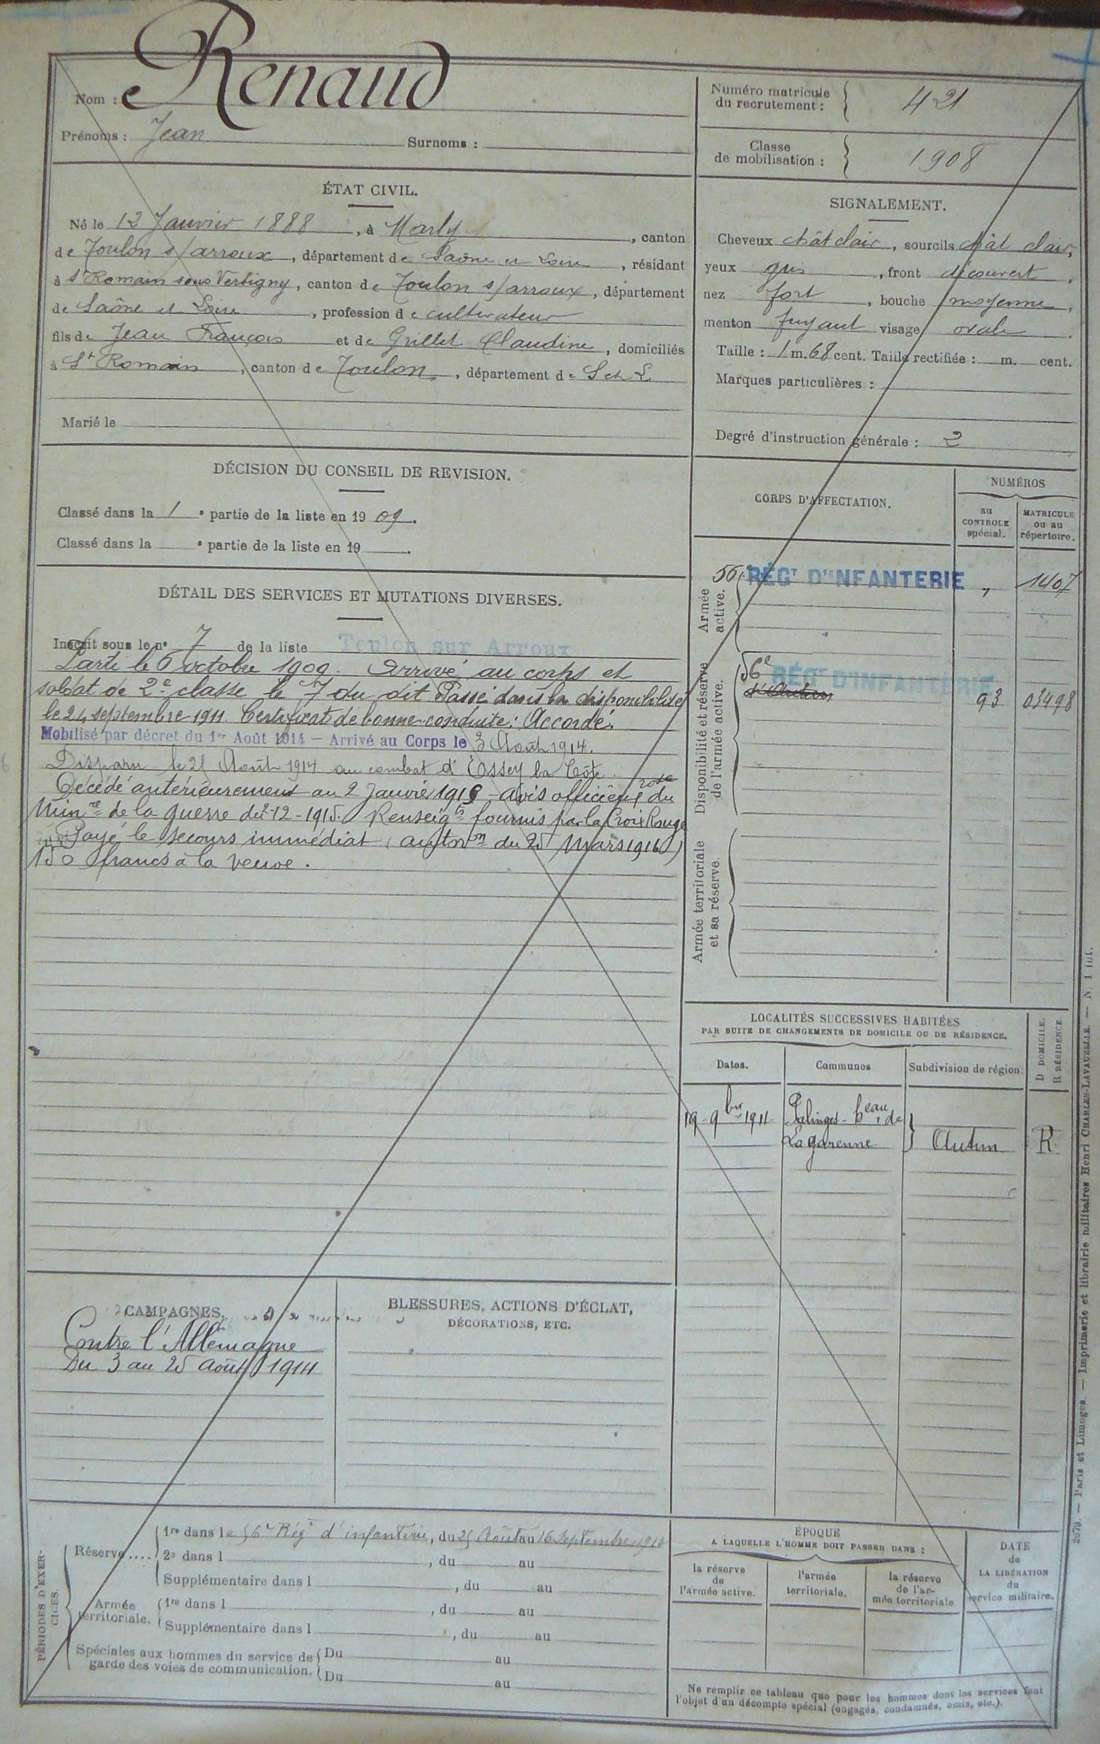 Nom : Renaud
Prénoms : Jean Surnoms :
Numéro matricule
du recrutement : 421
Classe
de mobilisation : 1908
ÉTAT CIVIL.
Né le 12 Janvier 1888, à Marly, canton
de Toulon s/arroux, département de Saône et Loire, résidant
à St Romain sous Versigny, canton de Toulon s/arroux, département
de Saône et Loire, profession de cultivateur
fils de Jean François et de Grillet Claudine, domiciliés
à St Romain, canton de Toulon, département de S et L
Marié le
SIGNALEMENT.
Cheveux chât clair, sourcils chât clair,
yeux gris, front découvert,
nez fort, bouche moyenne,
menton fuyant visage ovale
Taille : 1 m. 68 cent. Taille rectifiée : m. cent.
Marques particulières :
Degré d'instruction générale : 2
DÉCISION DU CONSEIL DE REVISION.
Classé dans la 1e partie de la liste en 1909.
Classé dans la e partie de la liste en 19 .
DÉTAIL DES SERVICES ET MUTATIONS DIVERSES.
Inscrit sous le no 7 de la liste Toulon sur Arroux
Parti le 6 octobre 1909. Arrivé au corps et
soldat de 2e classe le 7 du dit Passé dans la disponibilité
le 24 septembre 1911. Certificat de bonne conduite : Accordé.
Mobilisé par décret du 1er Août 1914 — Arrivé au Corps le 3 Août 1914.
Disparu le 25 Août 1914 au combat d'Essey la Côte.
Décédé antérieurement au 2 Janvier 1915 - avis officiel du
Minre de la guerre du 2-12-1915. Renseigts fournis par la Croix Rouge
Payé le secours immédiat (auton du 25 Mars 1916)
150 francs à la veuve.
CORPS D'AFFECTATION.
NUMÉROS
au
CONTROLE
spécial.
MATRICULE
ou au
répertoire.
Armée
active.
56e RÉGT D'INFANTERIE " 1407
Disponibilité et réserve
de l'armée active.
56e RÉGT D'INFANTERIE 93 03498
d'Autun
Armée territoriale
et sa réserve.
LOCALITÉS SUCCESSIVES HABITÉES
PAR SUITE DE CHANGEMENTS DE DOMICILE OU DE RÉSIDENCE.
Dates.
Communes
Subdivision de région
D DOMICILE.
R RÉSIDENCE.
19-9bre 1911 Palinges-beau de
Lagarenne Autun R
CAMPAGNES.
Contre l'Allemagne
Du 3 au 25 août 1914
BLESSURES, ACTIONS D'ÉCLAT,
DÉCORATIONS, ETC.
PÉRIODES D'EXER-
CICES.
Réserve.... 1re dans le 56e Régt d'infanterie, du 25 Août au 16 Septembre 1913
2e dans l , du au
Supplémentaire dans l , du au
Armée
territoriale. 1re dans l , du au
Supplémentaire dans l , du au
Spéciales aux hommes du service de
garde des voies de communication. Du au
Du au
ÉPOQUE
A LAQUELLE L'HOMME DOIT PASSER DANS :
la réserve
de
l'armée active.
l'armée
territoriale.
la réserve
de l'ar-
mée territoriale
DATE
de
LA LIBÉRATION
du
service militaire.
Ne remplir ce tableau que pour les hommes dont les services font
l'objet d'un décompte spécial (engagés, condamnés, omis, etc.).
Paris et Limoges. — Imprimerie et librairie militaires Henri CHARLES-LAVAUZELLE. — N. 1 int.